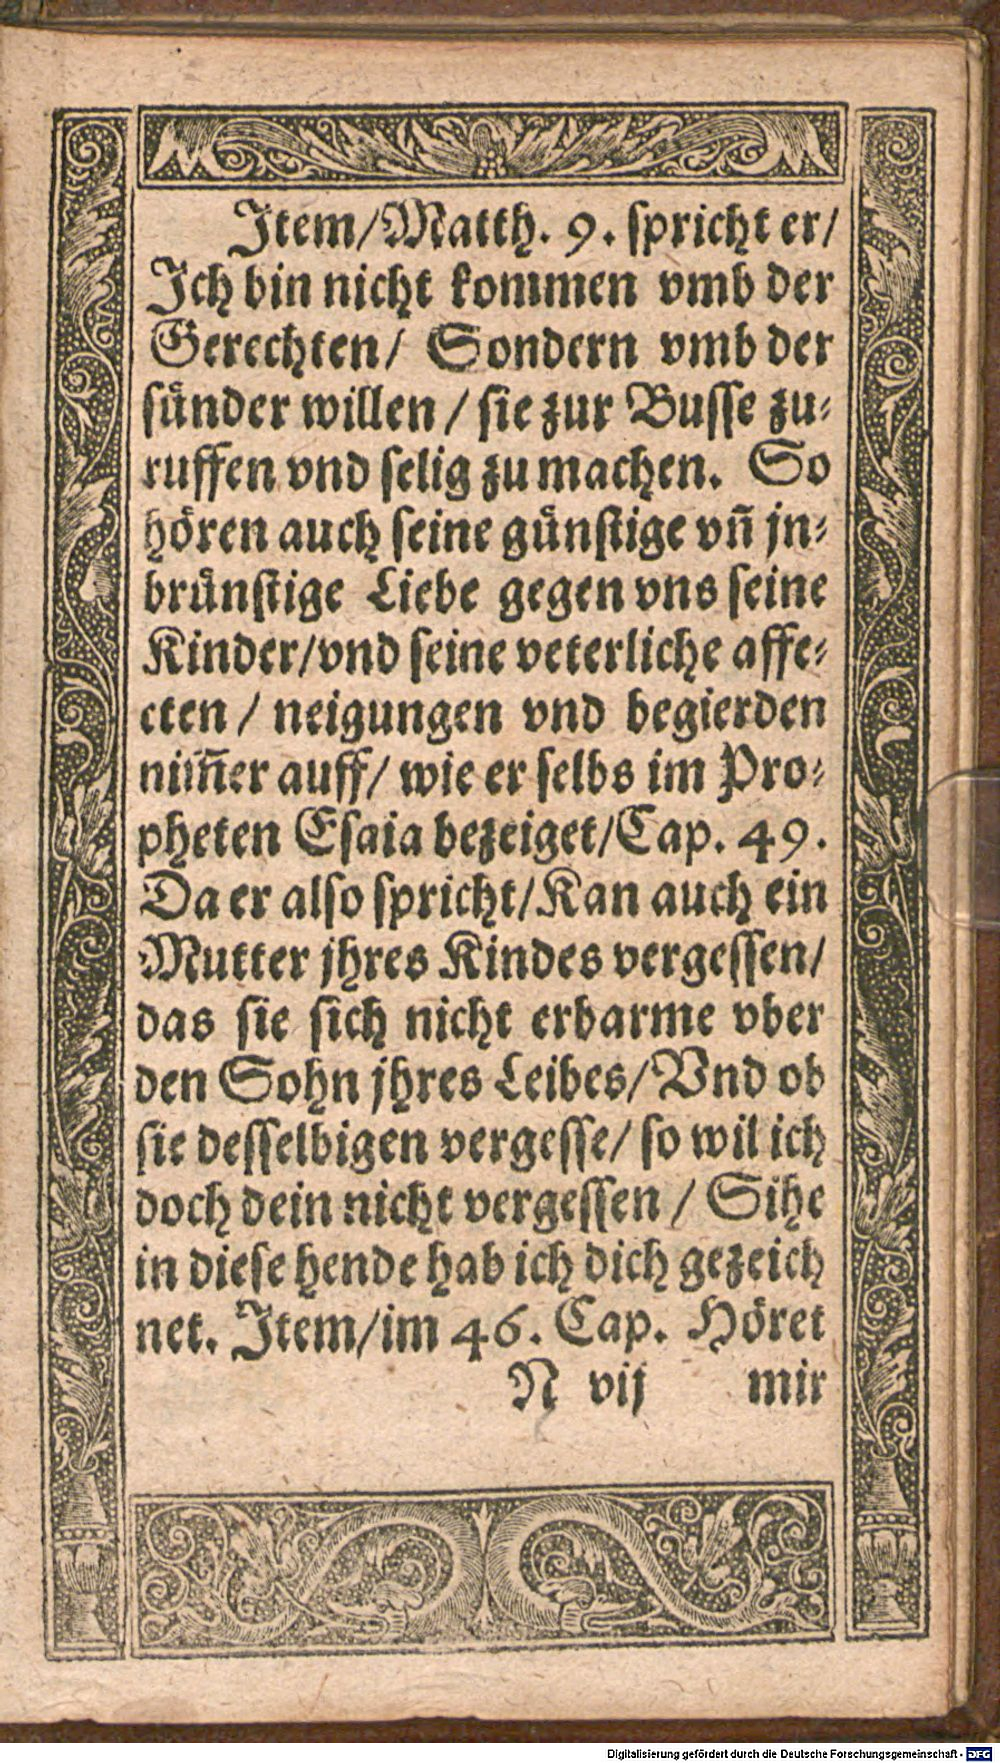 Item/Matth. 9. spricht er/
Ich bin nicht kommen vmb der
Gerechten/ Sondern vmb der
suͤnder willen / sie zur Busse zu⸗
ruffen vnd selig zu machen. So
hoͤren auch seine guͤnstige vñ jn⸗
bruͤnstige Liebe gegen vns seine
Kinder/vnd seine veterliche affe⸗
cten / neigungen vnd begierden
nim̃er auff/ wie er selbs im Pro⸗
pheten Esaia bezeiget/Cap. 49.
Da er also spricht/Kan auch ein
Mutter jhres Kindes vergessen/
das sie sich nicht erbarme vber
den Sohn jhres Leibes/Vnd ob
sie desselbigen vergesse/ so wil ich
doch dein nicht vergessen / Sihe
in diese hende hab ich dich gezeich
net. Item/im 46. Cap. Hoͤret
N vij mir
Digitalisierung gefördert durch die Deutsche Forschungsgemeinschaft - DFG